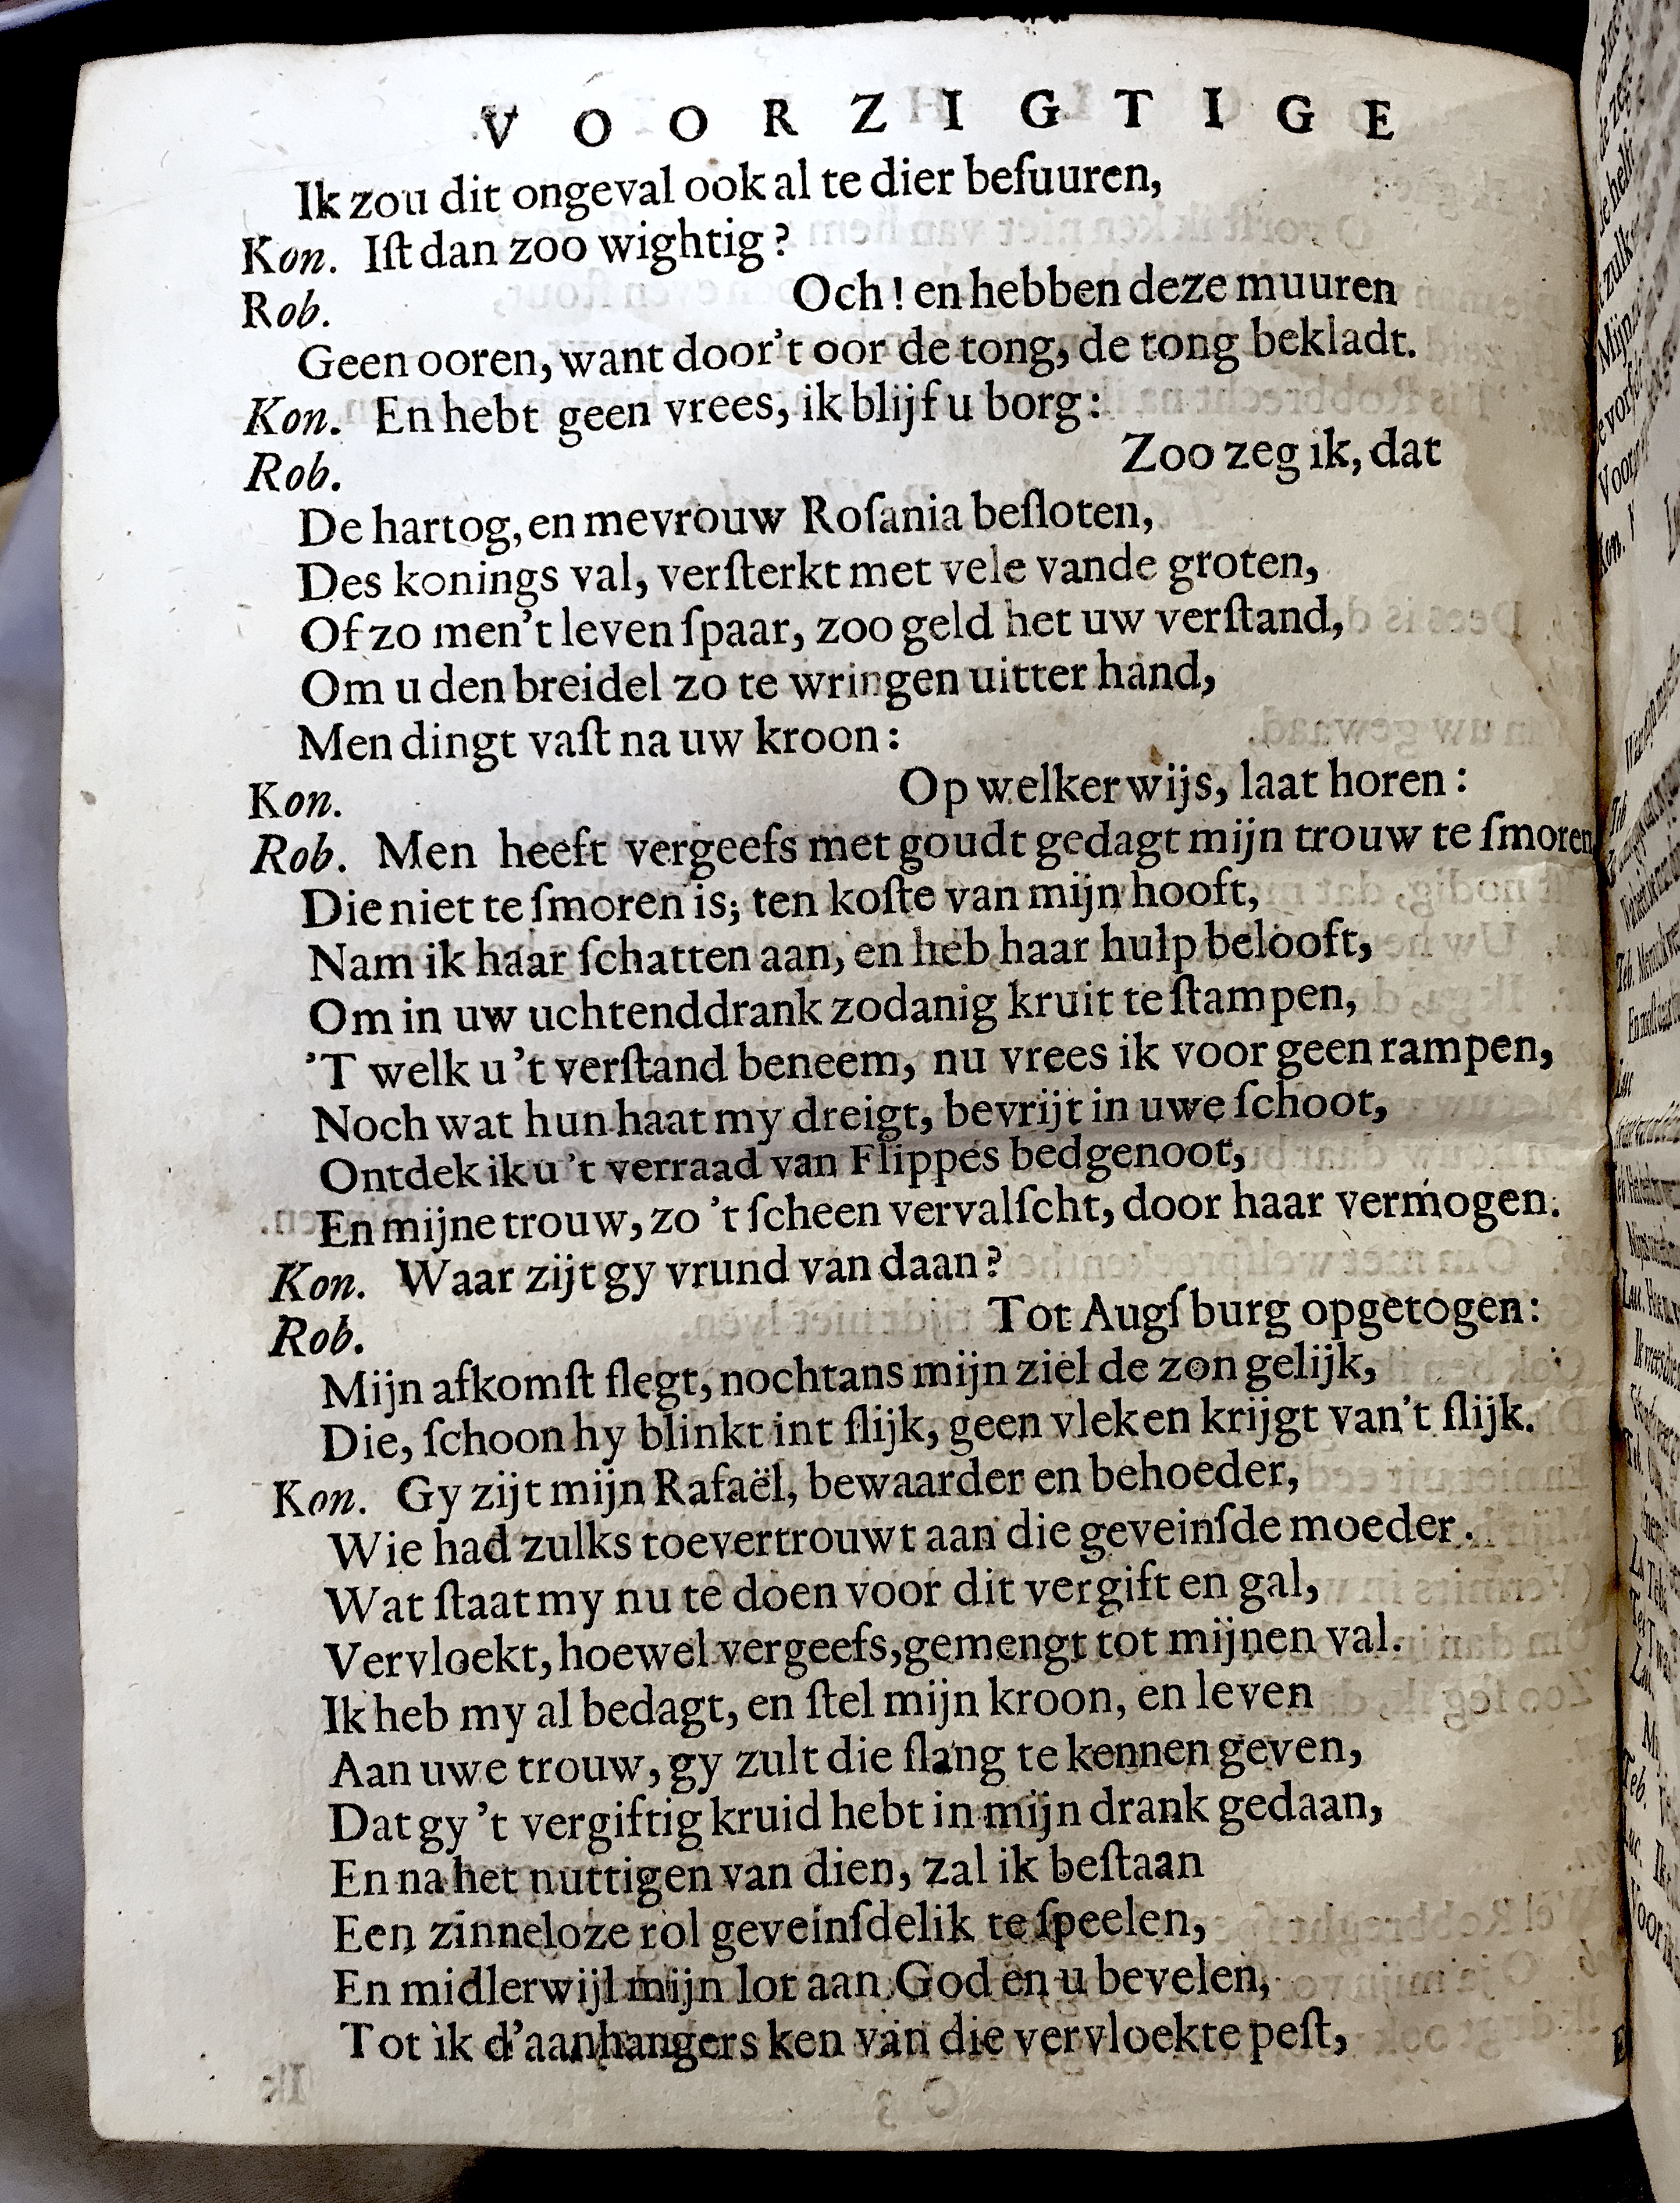 VOORZIGTIGE
Ik zou dit ongeval ook al te dier beſuuren,
Kon. Iſt dan zoo wightig?
Rob. Och! en hebben deze muuren
Geen ooren, want door't oor de tong, de tong bekladt.
Kon. En hebt geen vrees, ik blijf u borg:
Rob. Zoo zeg ik, dat
De hartog, en mevrouw Roſania beſloten,
Des konings val, verſterkt met vele vande groten,
Of zo men't leven ſpaar, zoo geld het uw verſtand,
Om u den breidel zo te wringen uitter hand,
Men dingt vaſt na uw kroon:
Kon. Op welker wijs, laat horen:
Rob. Men heeft vergeefs met goudt gedagt mijn trouw te ſmoren
Die niet te ſmoren is; ten koſte van mijn hooft,
Nam ik haar ſchatten aan, en heb haar hulp belooft,
Om in uw uchtenddrank zodanig kruit te ſtampen,
'T welk u 't verſtand beneem, nu vrees ik voor geen rampen,
Noch wat hun haat my dreigt, bevrijt in uwe ſchoot,
Ontdek ik u 't verraad van Flippes bedgenoot,
En mijne trouw, zo 't ſcheen vervalſcht, door haar vermogen.
Kon. Waar zijt gy vrund van daan?
Rob. Tot Augſburg opgetogen:
Mijn afkomſt ſlegt, nochtans mijn ziel de zon gelijk,
Die, ſchoon hy blinkt int ſlijk, geen vleken krijgt van't ſlijk.
Kon. Gy zijt mijn Rafaël, bewaarder en behoeder,
Wie had zulks toevertrouwt aan die geveinſde moeder.
Wat ſtaat my nu te doen voor dit vergift en gal,
Vervloekt, hoewel vergeefs, gemengt tot mijnen val.
Ik heb my al bedagt, en ſtel mijn kroon, en leven
Aan uwe trouw, gy zult die ſlang te kennen geven,
Dat gy 't vergiftig kruid hebt in mijn drank gedaan,
En na het nuttigen van dien, zal ik beſtaan
Een zinneloze rol geveinſdelik te ſpeelen,
En midlerwijl mijn lot aan God en u bevelen,
Tot ik d'aanhangers ken van die vervloekte peſt,